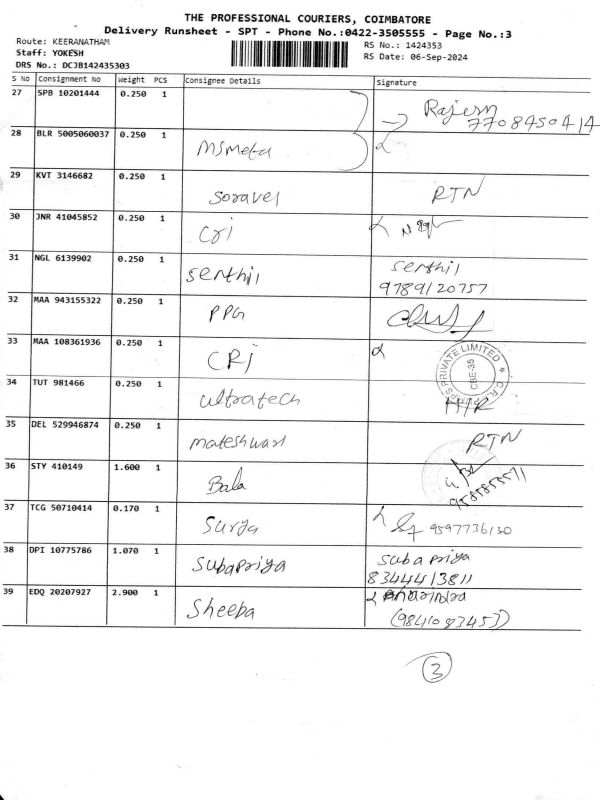 THE PROFESSIONAL COURIERS, COIMBATORE
Delivery Runsheet - SPT - Phone No.:0422-3505555 - Page No.:3
Route: KEERANATHAM
RS No.: 1424353
Staff: YOKESH
RS Date: 06-Sep-2024
DRS No.: DCJB142435303
S No Consignment No Weight PCS Consignee Details Signature
27 SPB 10201444 0.250 1 Rajesm
7708450414
28 BLR 5005060037 0.250 1 msmeta
29 KVT 3146682 0.250 1 Soravel RTN
30 JNR 41045852 0.250 1 Cri
31 NGL 6139902 0.250 1 Senthil Senthil
9789120757
32 MAA 943155322 0.250 1 PPG
33 MAA 108361936 0.250 1 CRI
PRIVATE LIMITED
CBE-35
34 TUT 981466 0.250 1 ultratech
35 DEL 529946874 0.250 1 mateshwari RTN
36 STY 410149 1.600 1 Bala
37 TCG 50710414 0.170 1 Surya 9597736130
38 DPI 10775786 1.070 1 Subapriya Subapriya
8344413811
39 EDQ 20207927 2.900 1 Sheeba
(9841083453)
3